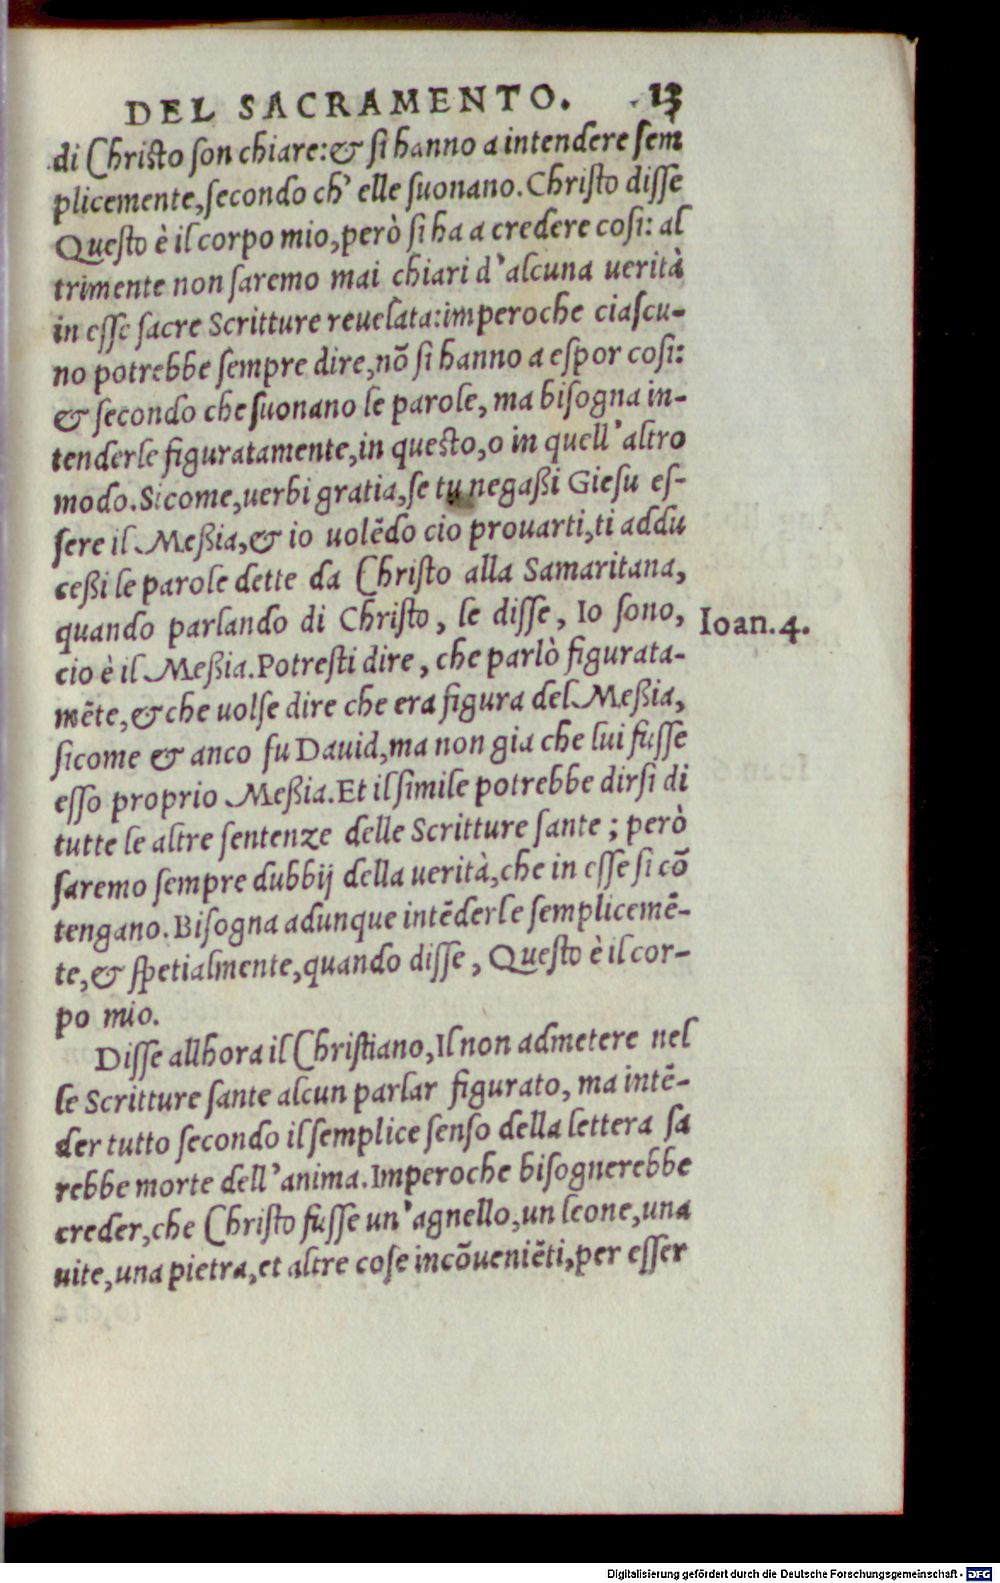 DEL SACRAMENTO. 13
di Christo son chiare: & si hanno a intendere sem
plicemente, secondo ch' elle suonano. Christo disse
Questo è il corpo mio, però si ha a credere cosi: al
trimente non saremo mai chiari d'alcuna uerità
in esse sacre Scritture reuelata: imperoche ciascu-
no potrebbe sempre dire, nõ si hanno a espor cosi:
& secondo che suonano le parole, ma bisogna in-
tenderle figuratamente, in questo, o in quell'altro
modo. Sicome, uerbi gratia, se tu negaßi Giesu es-
sere il Meßia, & io uolẽdo cio prouarti, ti addu
ceßi le parole dette da Christo alla Samaritana,
quando parlando di Christo, le disse, Io sono,
Ioan. 4.
cio è il Meßia. Potresti dire, che parlò figurata-
mẽte, & che uolse dire che era figura del Meßia,
sicome & anco fu Dauid, ma non gia che lui fusse
esso proprio Meßia. Et il simile potrebbe dirsi di
tutte le altre sentenze delle Scritture sante; però
saremo sempre dubbij della uerità, che in esse si cõ
tengano. Bisogna adunque intẽderle semplicemẽ-
te, & spetialmente, quando disse, Questo è il cor-
po mio.
Disse allhora il Christiano, Il non admetere nel
le Scritture sante alcun parlar figurato, ma intẽ-
der tutto secondo il semplice senso della lettera sa
rebbe morte dell'anima. Imperoche bisognerebbe
creder, che Christo fusse un'agnello, un leone, una
uite, una pietra, et altre cose incõueniẽti, per esser
Digitalisierung gefördert durch die Deutsche Forschungsgemeinschaft - DFG